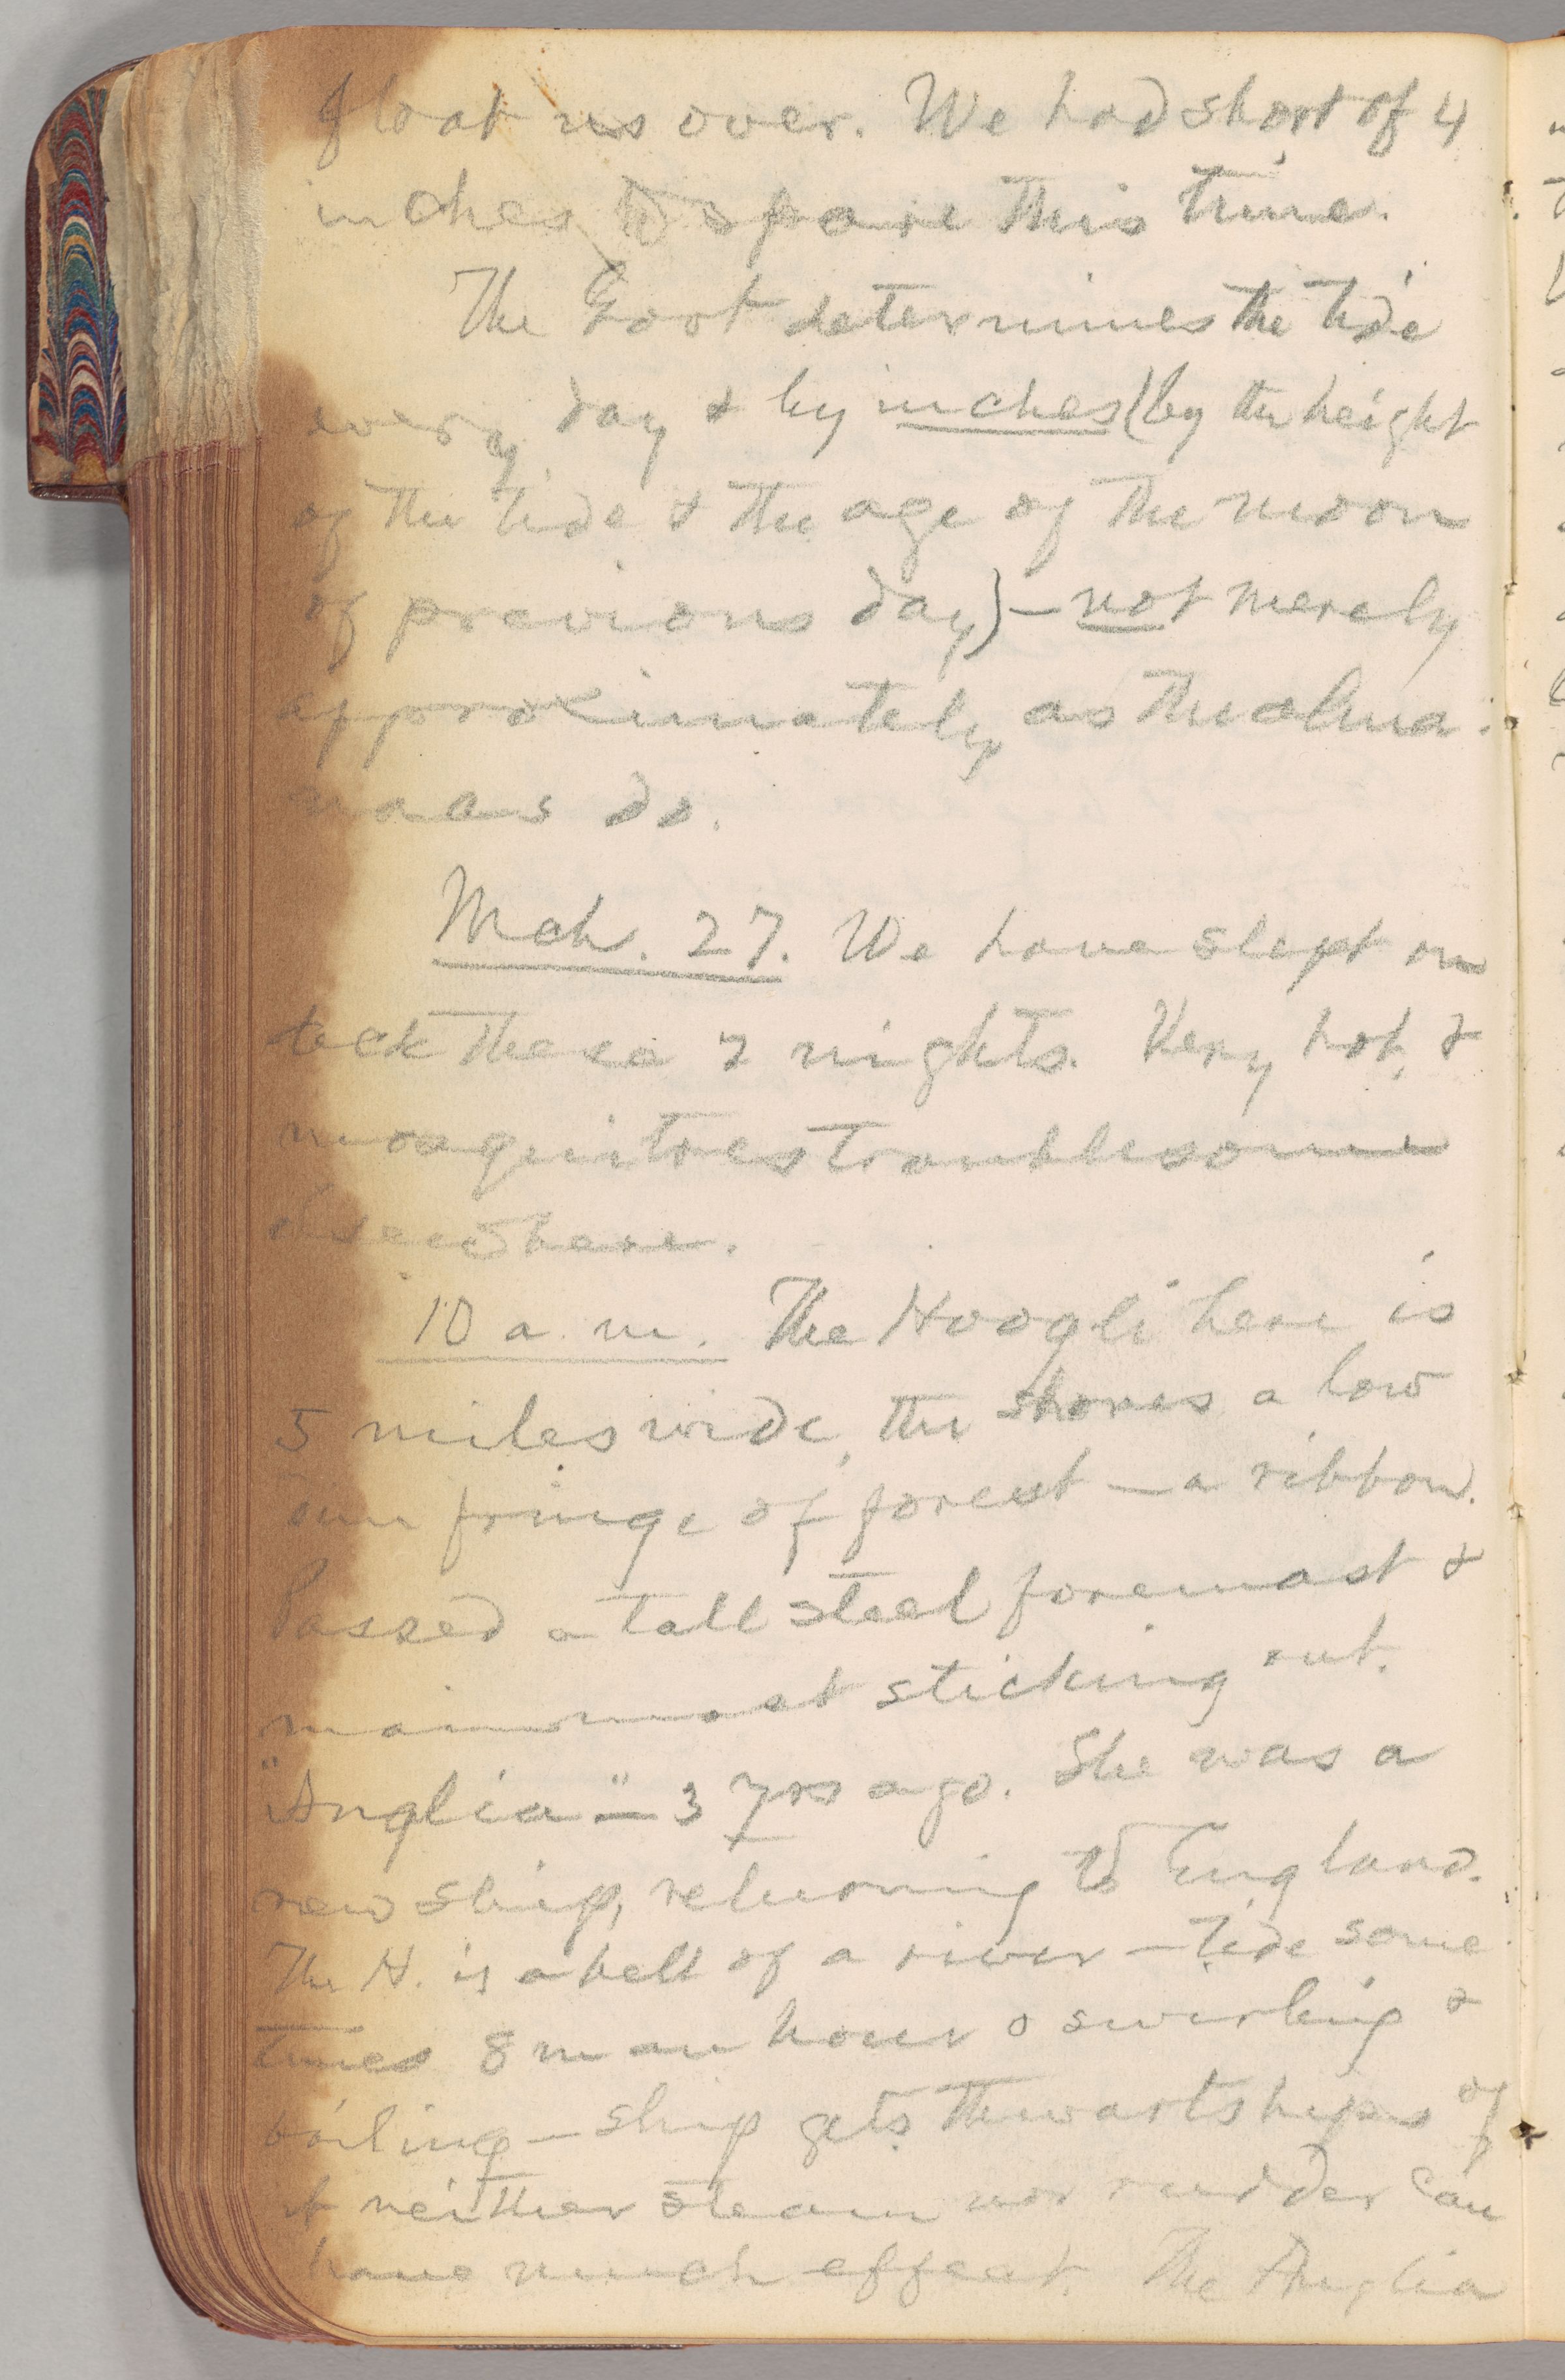 float us over. We had short of 4
inches to spare this time.
The Govt determines the tide
every day & by inches (by the height
of the tide & the age of the moon
of previous day) – not merely
approximately, as the alma-
nacs do.
Mch. 27. We have slept on
deck these 2 nights. Very hot, &
mosquitoes troublesome
elsewhere.
10 a. m. The Hoogli here is
5 miles wide, the shores a low
thin fringe of forest – a ribbon.
Passed a tall steel foremast &
mainmast sticking out.
"Anglia" – 3 yrs ago. She was a
new ship, returning to England.
The H. is a hell of a river – tide some-
times 8 m an hour & swirling &
boiling – ship gets thwartships of
it neither steam nor rudder can
have much effect. The Anglia